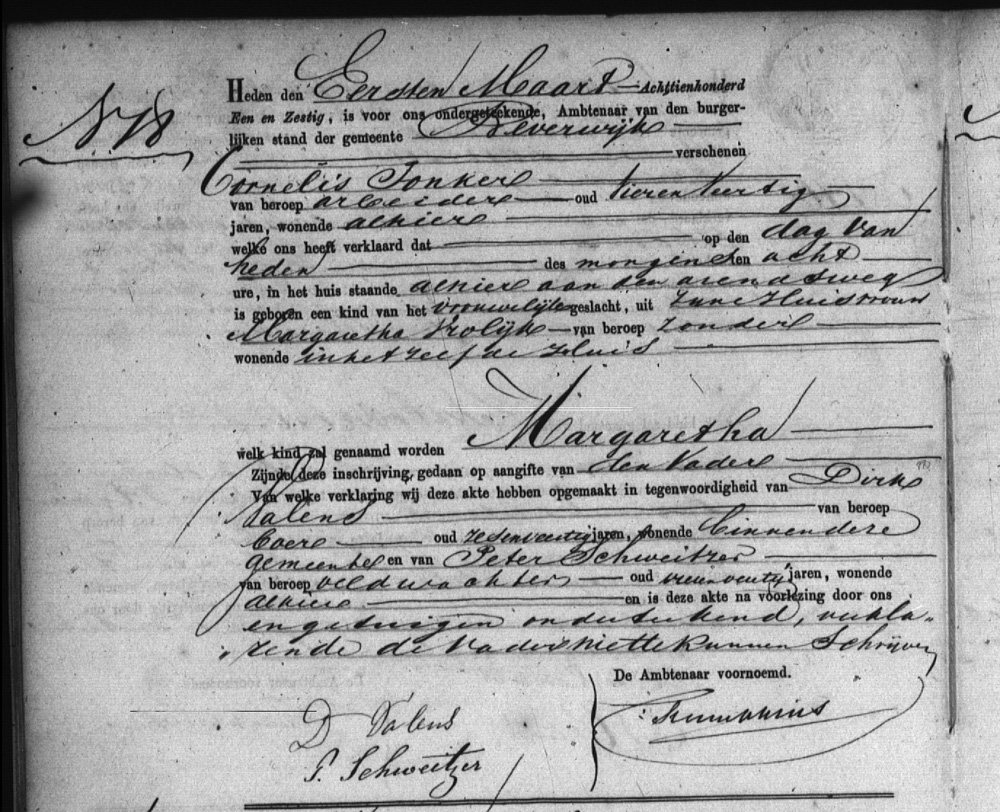 N 18
Heden den Eersten Maart Achttienhonderd
Een en Zestig, is voor ons ondergeteekende, Ambtenaar van den burger-
lijken stand der gemeente Beverwijk
verschenen
Cornelis Jonker
van beroep arbeider oud vierenveertig
jaren, wonende alhier
welke ons heeft verklaard dat op den dag van
heden des morgens ten acht
ure, in het huis staande alhier aan den arendsweg
is geboren een kind van het vrouwelijke geslacht, uit zijne Huisvrouw
Margaretha Vrolijk van beroep zonder
wonende in het zelfde Huis
welk kind zal genaamd worden Margaretha
Zijnde deze inschrijving, gedaan op aangifte van den Vader
Van welke verklaring wij deze akte hebben opgemaakt in tegenwoordigheid van Dirk
Valens van beroep
boer oud zesenveertig jaren, wonende binnen deze
gemeente en van Peter Schweitzer
van beroep veldwachter oud jaren, wonende
alhier en is deze akte na voorlezing door ons
en getuigen onderteekend, verkla-
rende de Vader niet te kunnen Schrijven
De Ambtenaar voornoemd.
D Valens
P. Schweitzer